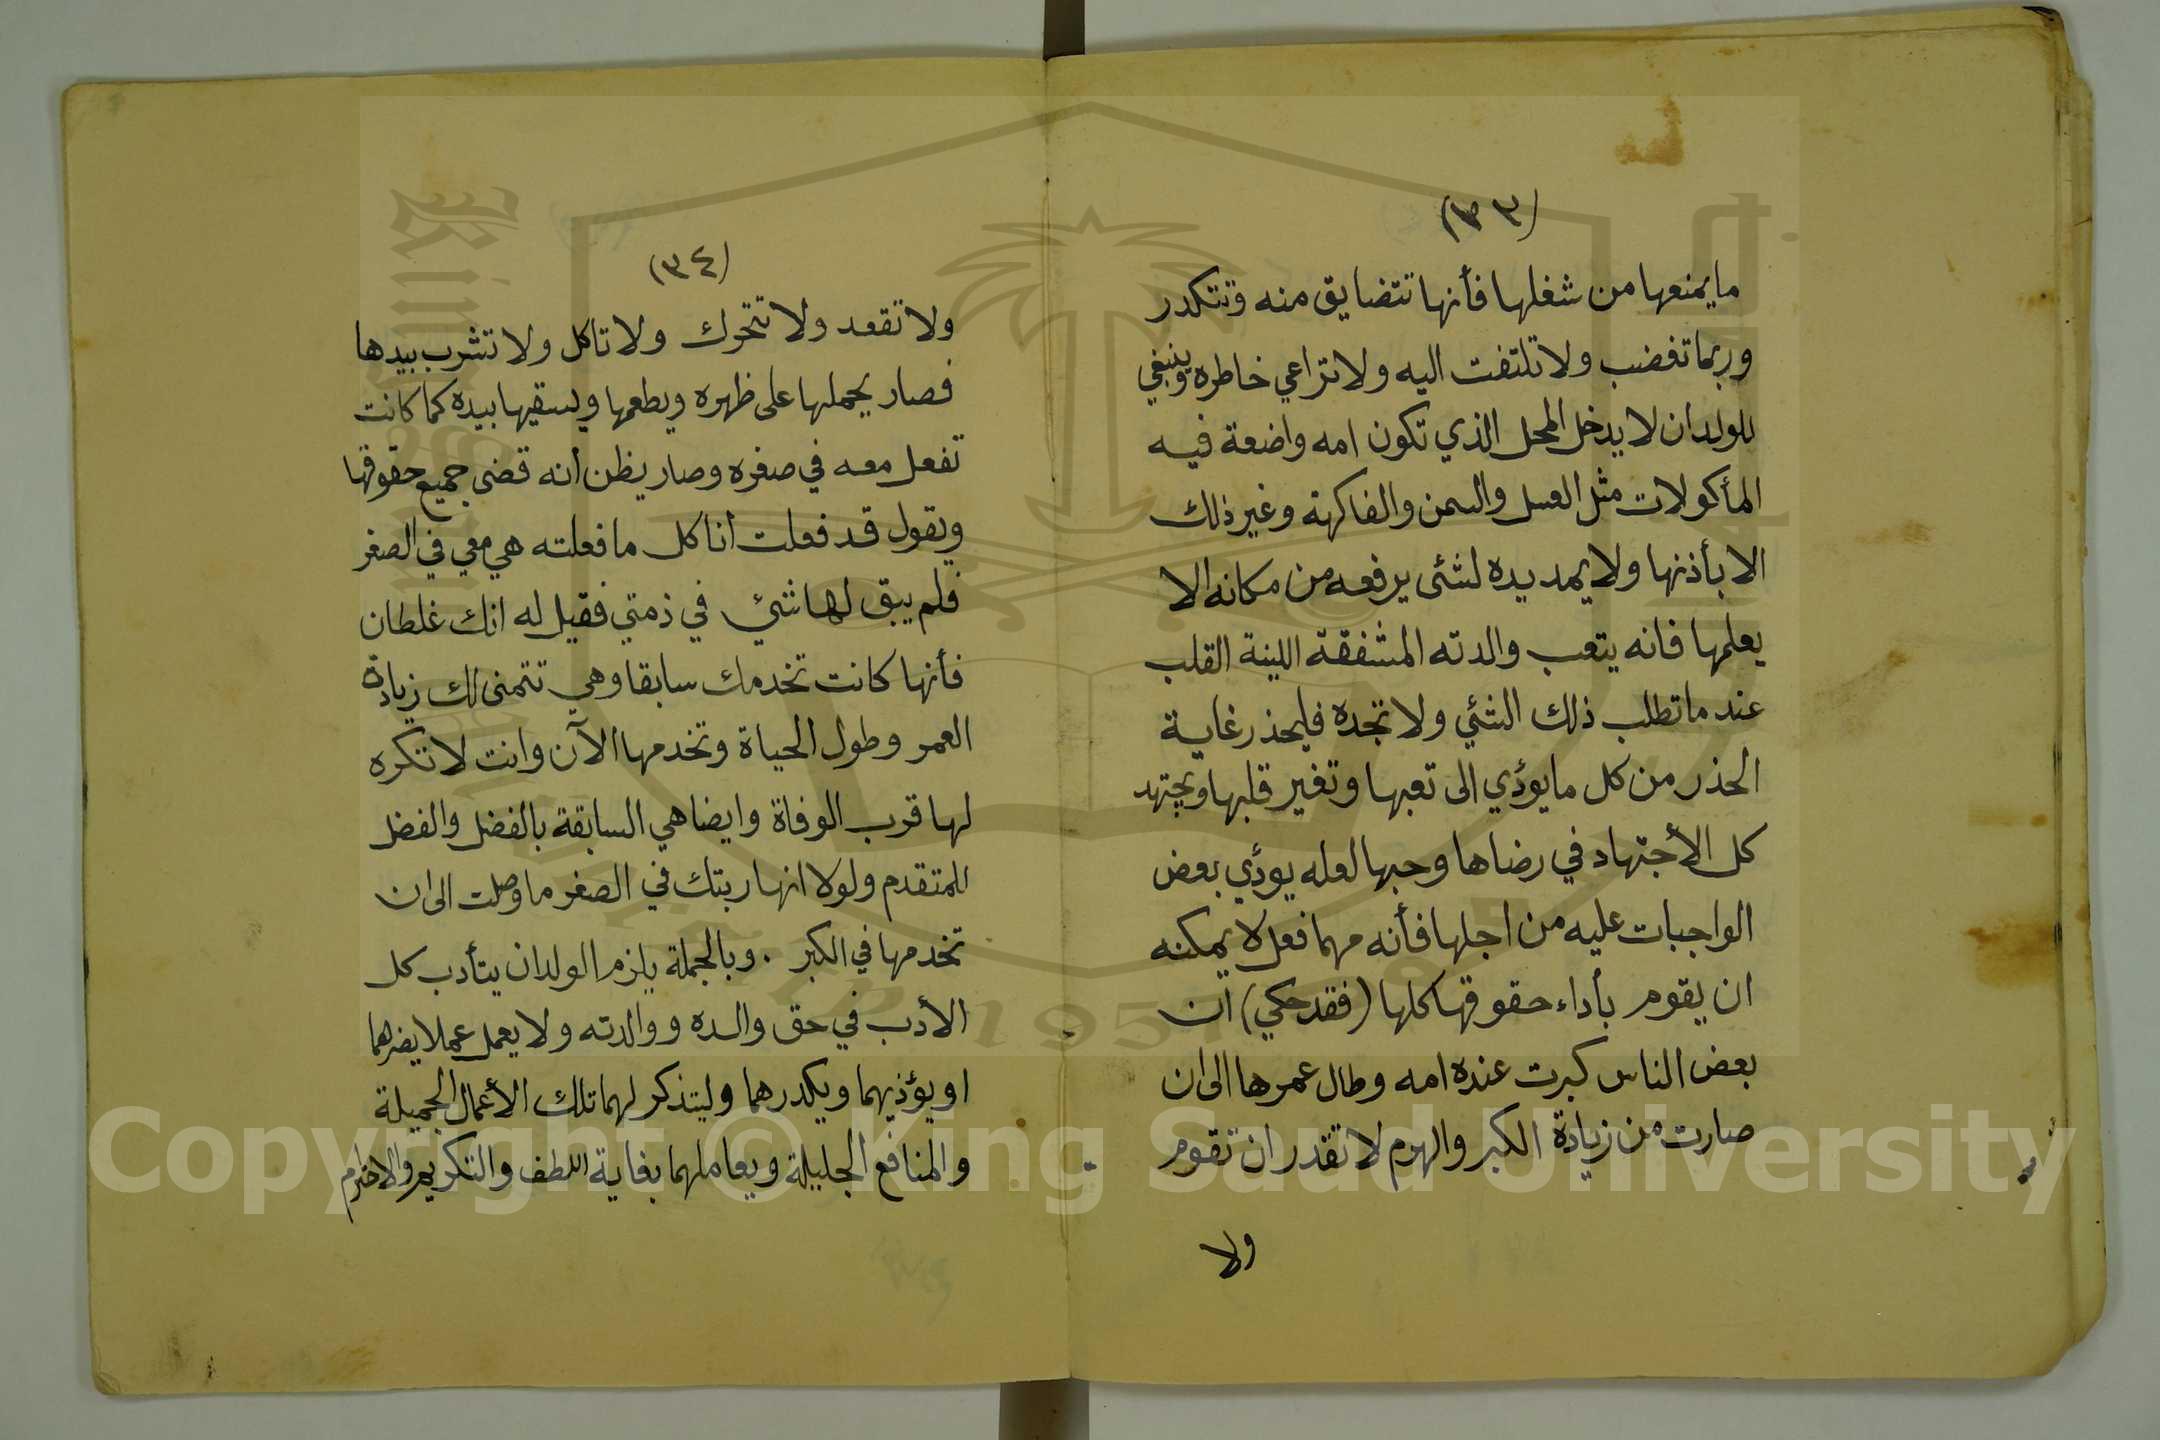 (٣٣)
ما يمنعها من شغلها فأنها تتضايق منه وتتكدر
وربما تغضب ولا تلتفت اليه ولا تراعي خاطره وينبغي
للولد ان لا يدخل المحل الذي تكون امه واضعة فيه
المأكولات مثل العسل والسمن والفاكهة وغير ذلك
الا بأذنها ولا يمد يده لشئ يرفعه من مكانه الا
يعلمها فانه يتعب والدته المشفقة اللينة القلب
عند ما تطلب ذلك الشئي ولا تجده فليحذر غاية
الحذر من كل ما يؤدي الى تعبها وتغير قلبها ويجتهد
كل الأجتهاد في رضاها وحبها لعله يؤدي بعض
الواجبات عليه من اجلها فأنه مهما فعل لا يمكنه
ان يقوم بأداء حقوقها كلها (فقد حكي) ان
بعض الناس كبرت عنده امه وطال عمرها الى ان
صارت من زيادة الكبر والهرم لا تقدر ان تقوم
ولا
(٣٤)
ولا تقعد ولا تتحرك ولا تاكل ولا تشرب بيدها
فصار يحملها على ظهره ويطعمها ويسقيها بيده كما كانت
تفعل معه في صغره وصار يظن أنه قضى جميع حقوقها
ويقول قد فعلت انا كل ما فعلته هي معي في الصغر
فلم يبق لها شئي في ذمتي فقيل له انك غلطان
فأنها كانت تخدمك سابقا وهي تتمنى لك زيادة
العمر وطول الحياة وتخدمها الآن وانت لا تكره
لها قرب الوفاة وايضا هي السابقة بالفضل والفضل
للمتقدم ولولا انها ربتك في الصغر ما وصلت الى ان
تخدمها في الكبر . وبالجملة يلزم الولد ان يتأدب كل
الأدب في حق والده ووالدته ولا يعمل عملا يضرهما
او يؤذيهما ويكدرهما وليتذكر لهما تلك الأعمال الجميلة
والمنافع الجليلة ويعاملهما بغاية اللطف والتكريم والاحترام
Copyright © King Saud University